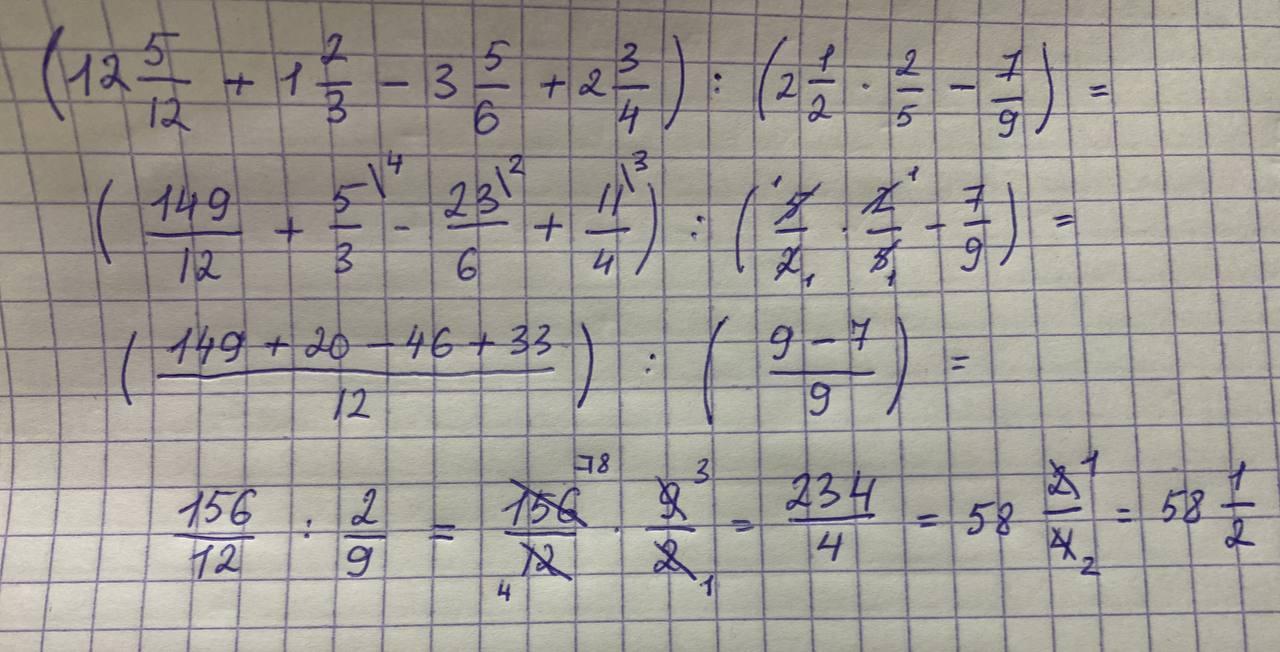 (12 5/12 + 1 2/3 - 3 5/6 + 2 3/4) : (2 1/2 · 2/5 - 7/9) =
(149/12 + 5/3\4 - 23/6\2 + 11/4\3) : (5/2 1 1 · 2/5 1 1 - 7/9) =
((149 + 20 - 46 + 33)/12) : ((9 - 7)/9) =
156/12 : 2/9 = 156/12 78 4 · 9/2 3 1 = 234/4 = 58 2/4 1 2 = 58 1/2